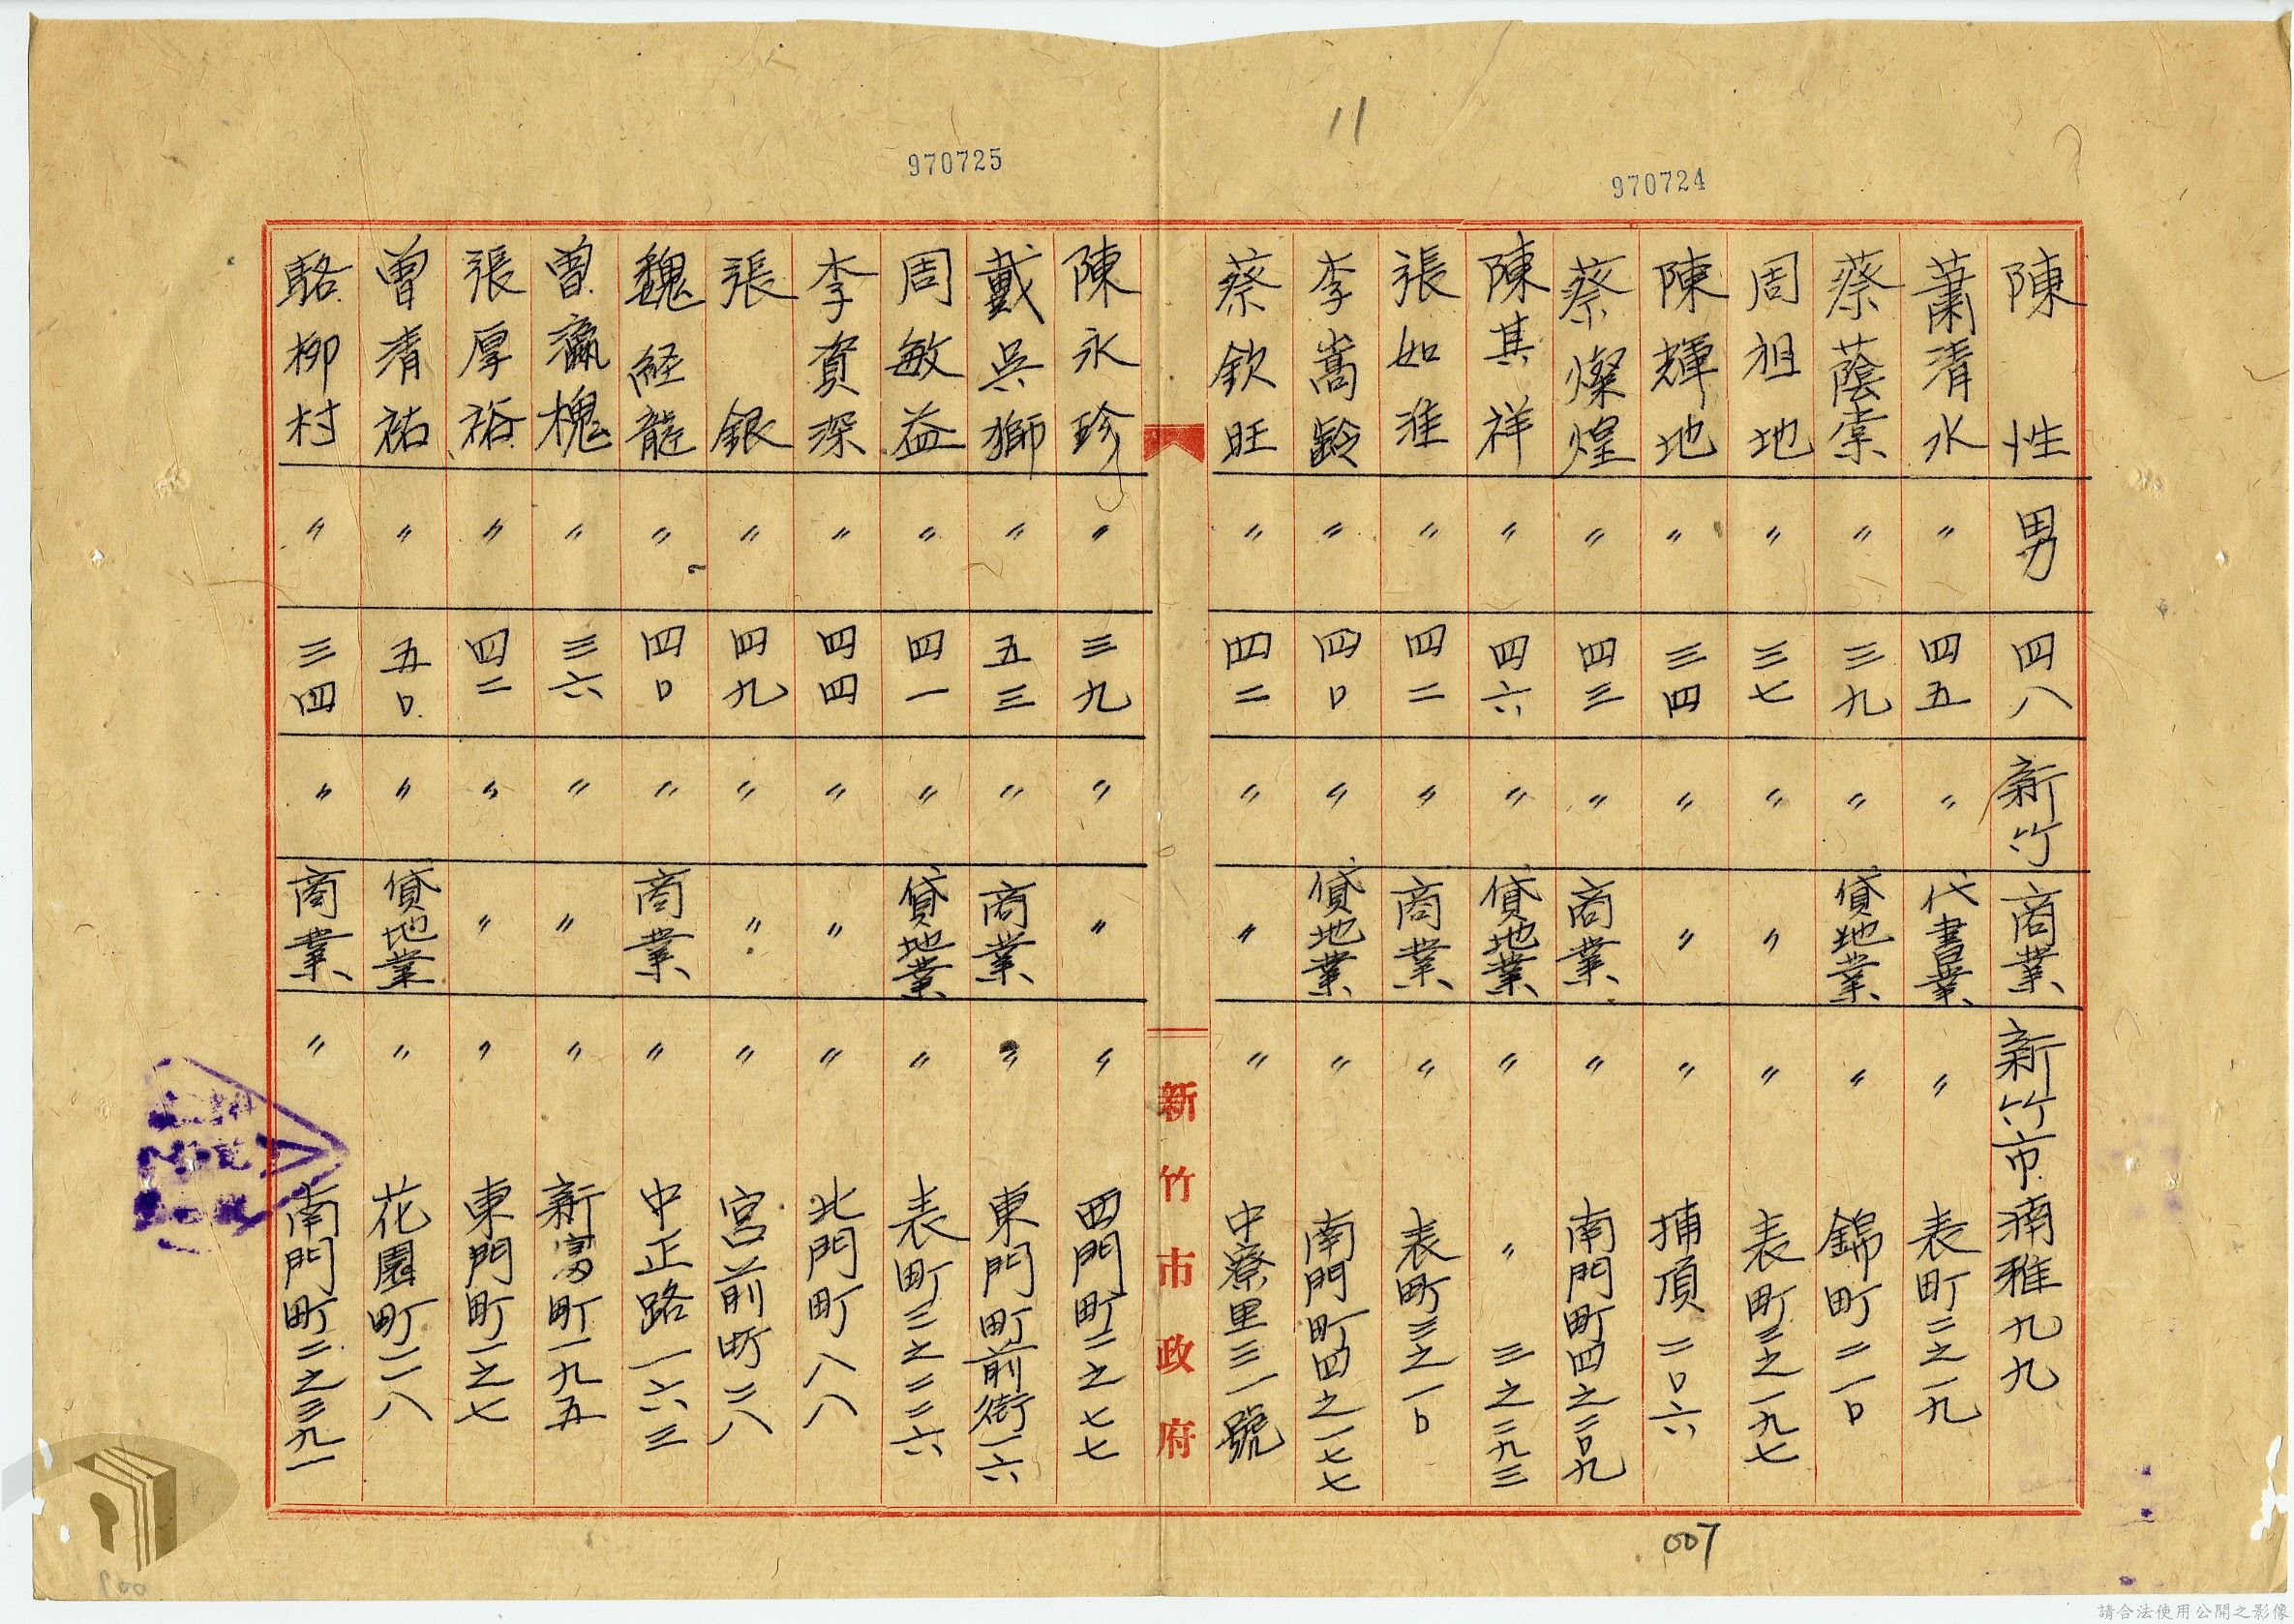 11
970725
970724
陳 性 男 四八 新竹 商業 新竹市湳雅九九
蕭清水 〃 四五 〃 代書業 〃 表町二之一九
蔡蔭棠 〃 三九 〃 貸地業 〃 錦町二一〇
周祖地 〃 三七 〃 〃 〃 表町三之一九七
陳輝地 〃 三四 〃 〃 〃 埔頂二〇六
蔡燦煌 〃 四三 〃 商業 〃 南門町四之二〇九
陳其祥 〃 四六 〃 貸地業 〃 〃 三之二九三
張如淮 〃 四二 〃 商業 〃 表町三之一〇
李嵩齡 〃 四〇 〃 貸地業 〃 南門町四之一七七
蔡欽旺 〃 四二 〃 〃 〃 中寮里三一號
新竹市政府
陳永珍 〃 三九 〃 〃 〃 西門町二之七七
戴吳獅 〃 五三 〃 商業 〃 東門町前街一六
周敏益 〃 四一 〃 貸地業 〃 表町三之二三六
李資深 〃 四四 〃 〃 〃 北門町八八
張 銀 〃 四九 〃 〃 〃 宮前町二八
魏経龍 〃 四〇 〃 商業 〃 中正路一六三
曾瀛槐 〃 三六 〃 〃 〃 新富町一九五
張厚裕 〃 四二 〃 〃 〃 東門町一之七
曾清祐 〃 五〇 〃 貸地業 〃 花園町一二八
駱柳村 〃 三四 〃 商業 〃 南門町二之三九一
007
請合法使用公開之影像